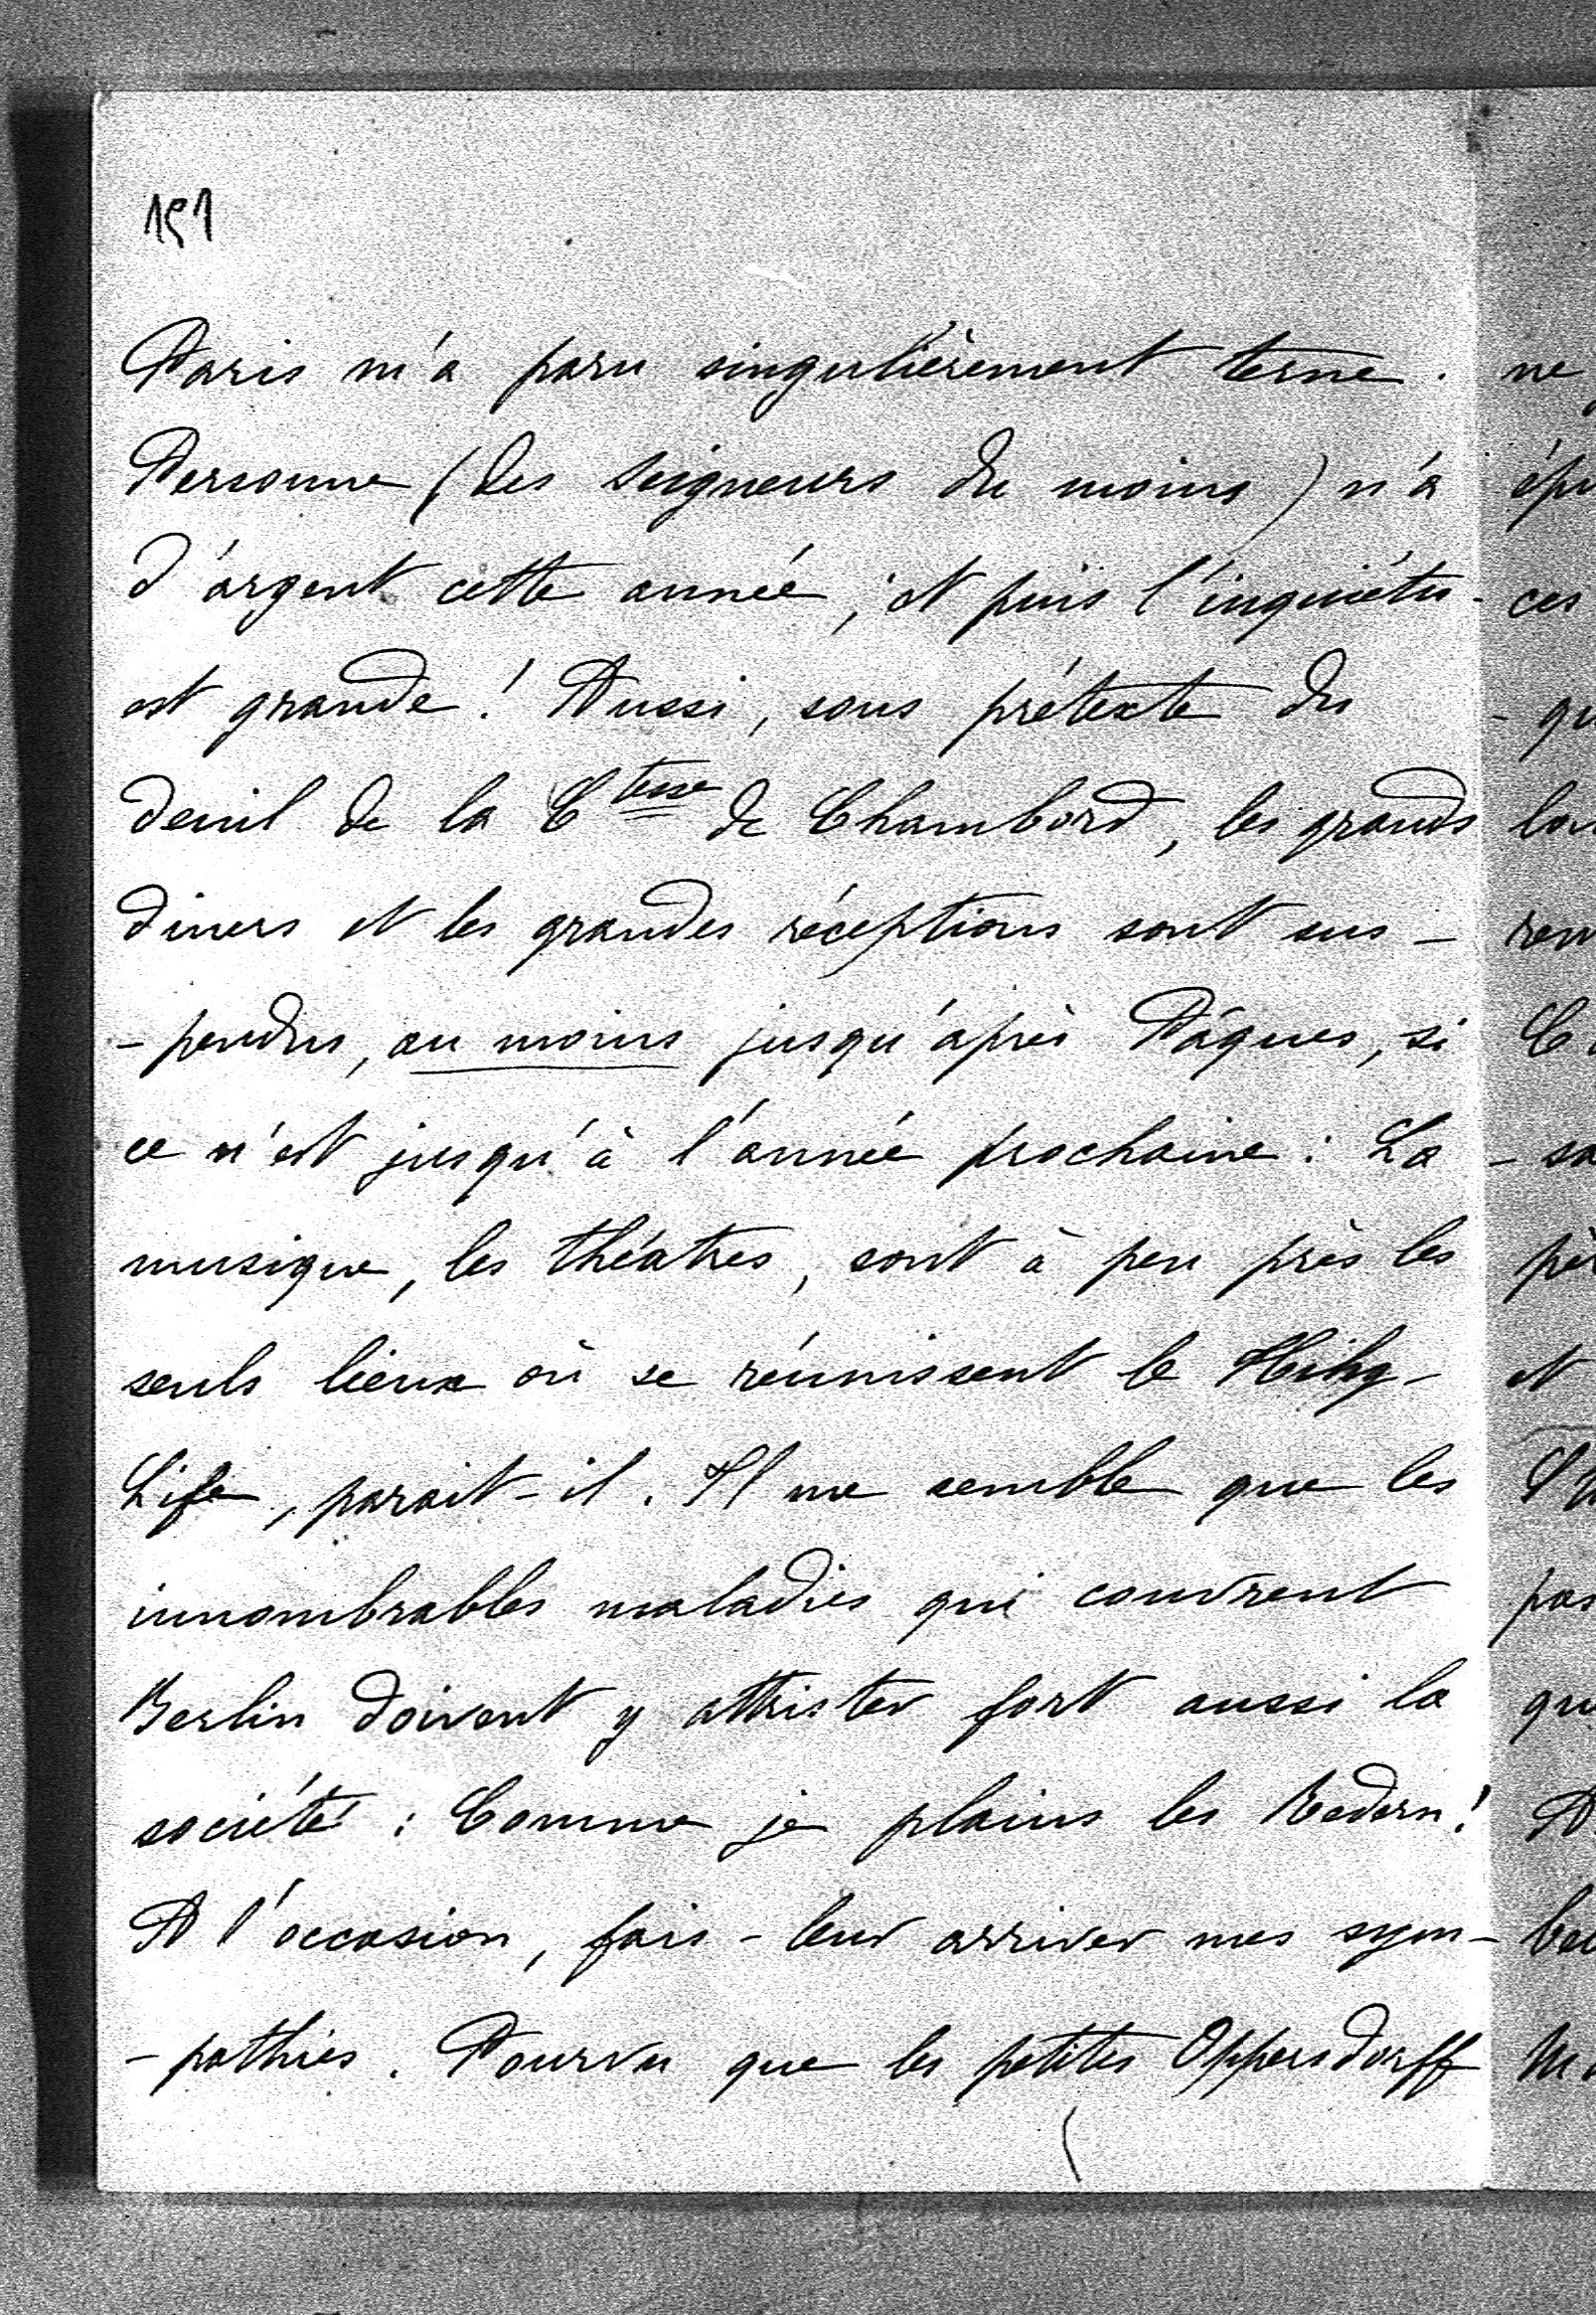 151
Paris m'a paru singulièrement terne.
Personne (des seigneurs du moins) n'a
d'argent cette année, et puis l'inquiétu-
est grande! Aussi, sous prétexte du
deuil de la Ctesse de Chambord, les grands
diners et les grandes réceptions sont sus-
-pendus, au moins jusqu'après Pâques, si
ce n'est jusqu'à l'année prochaine: La
musique, les théâtres, sont à peu près les
seuls lieux où se réunissent le Hihg-
Life, parait-il. Il me semble que les
innombrables maladies qui couvrent
Berlin doivent y attrister fort aussi la
société: Comme je plains les Redern!
A l'occasion, fais-leur arriver mes sym-
-pathies. Pourvu que les petites Oppersdorff